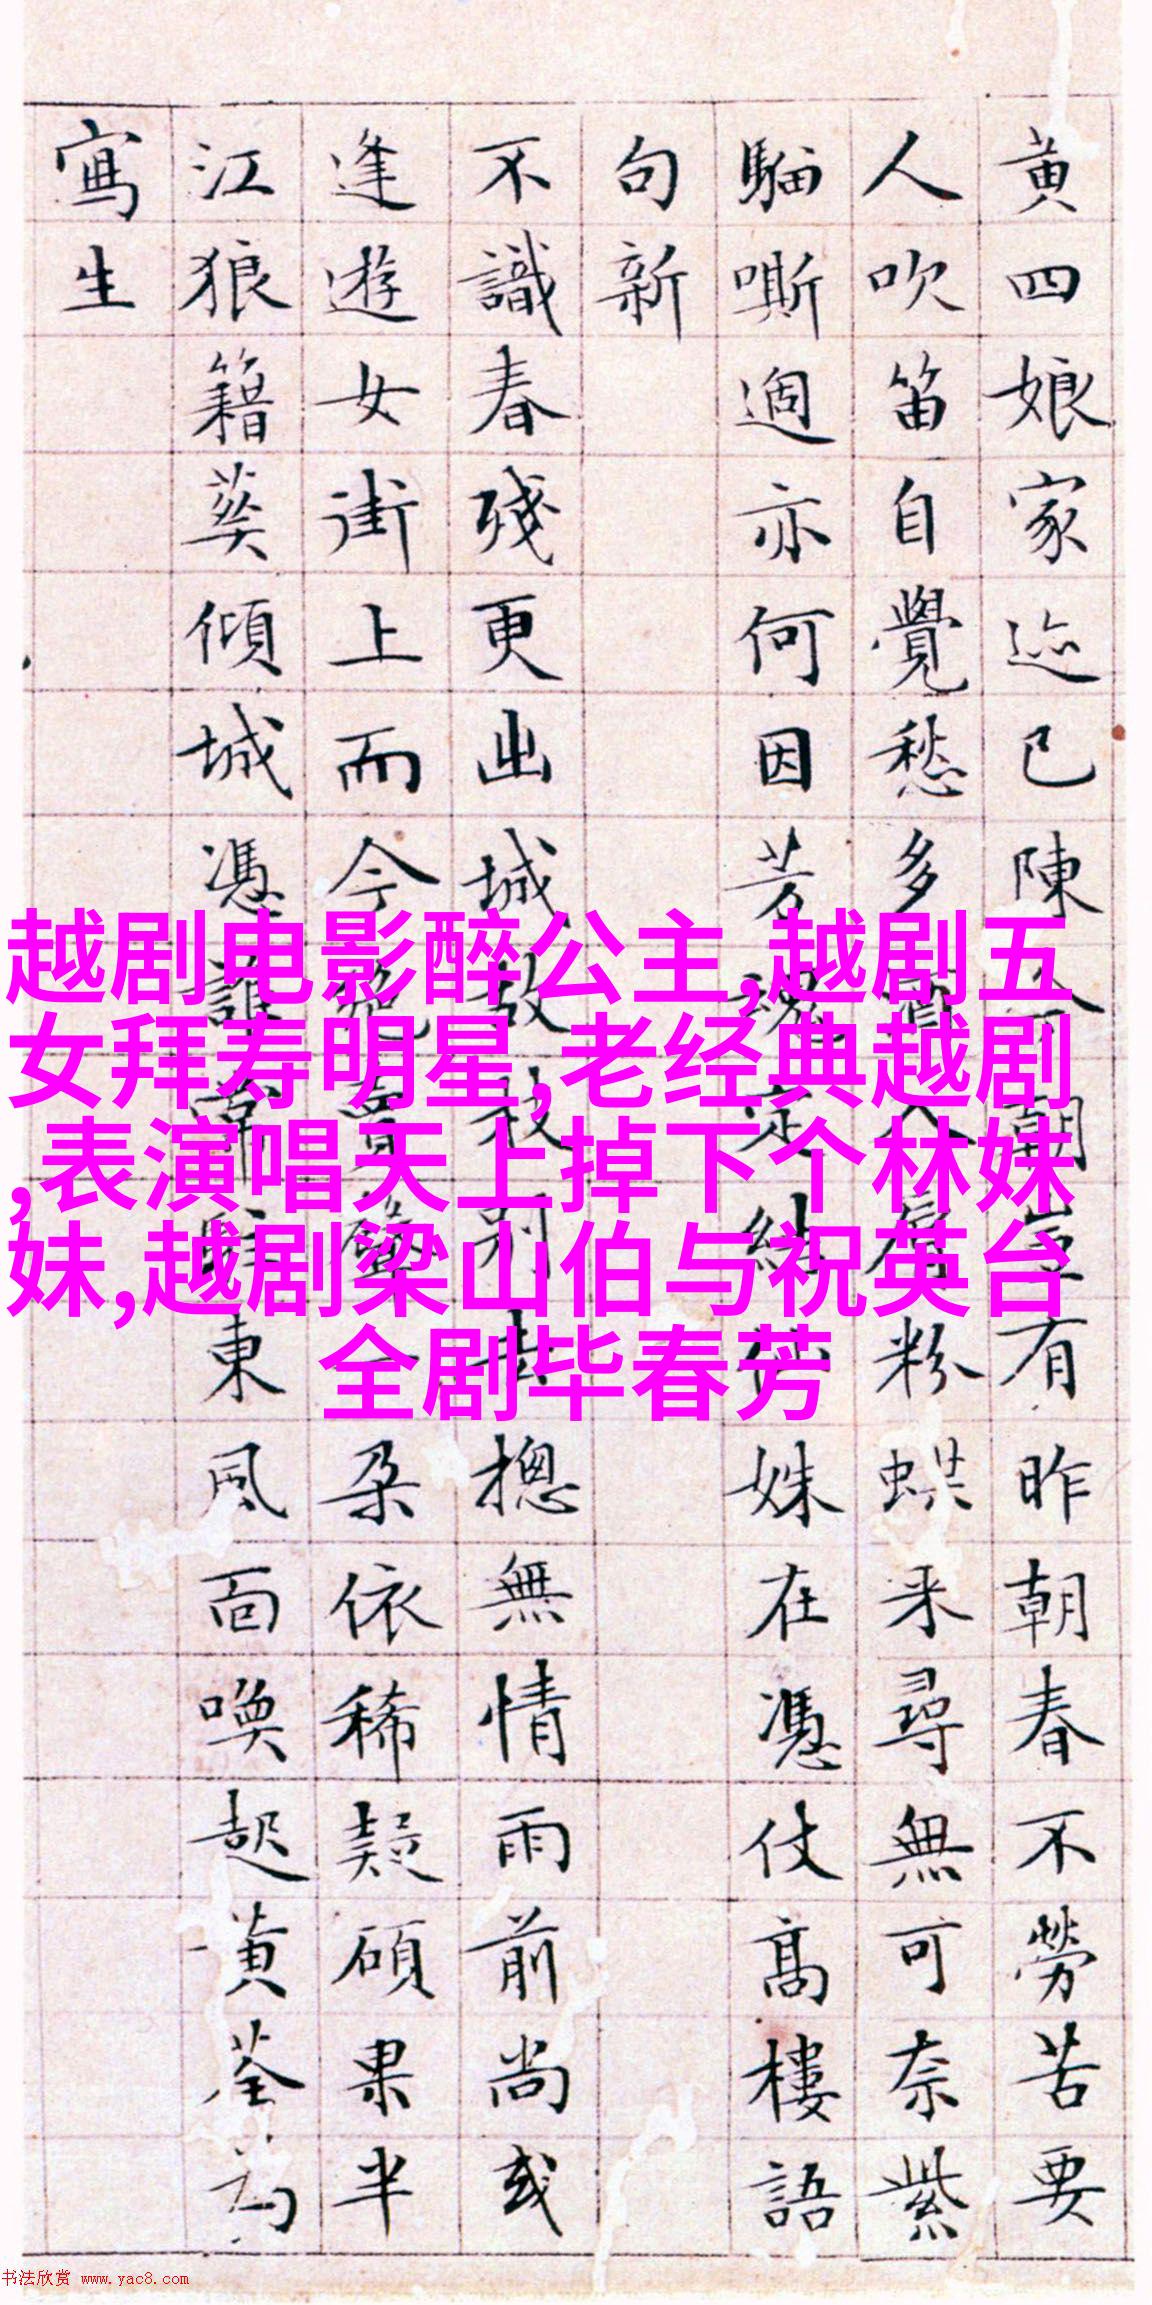 黄四娘家迹已陳朝有昨朝春不勞苦要
人吹笛自覺愁多粉蜨来尋無可奈紫
騮嘶過亦何因芳魂定結姝在憑仗高樓語
句新
不識春殘更出城故故別去摠無情雨前尚或
逢遊女街上而今絕賣聲一朵依稀疑碩果半
江狼籍葵傾城憑誰常駐東風面喚起黄荃為
寫生
越剧电影醉公主,越剧五
女拜寿明星,老经典越剧
,表演唱天上掉下个林妹
妹,越剧梁山伯与祝英台
全剧毕春芳
书法欣赏 www.yac8.com